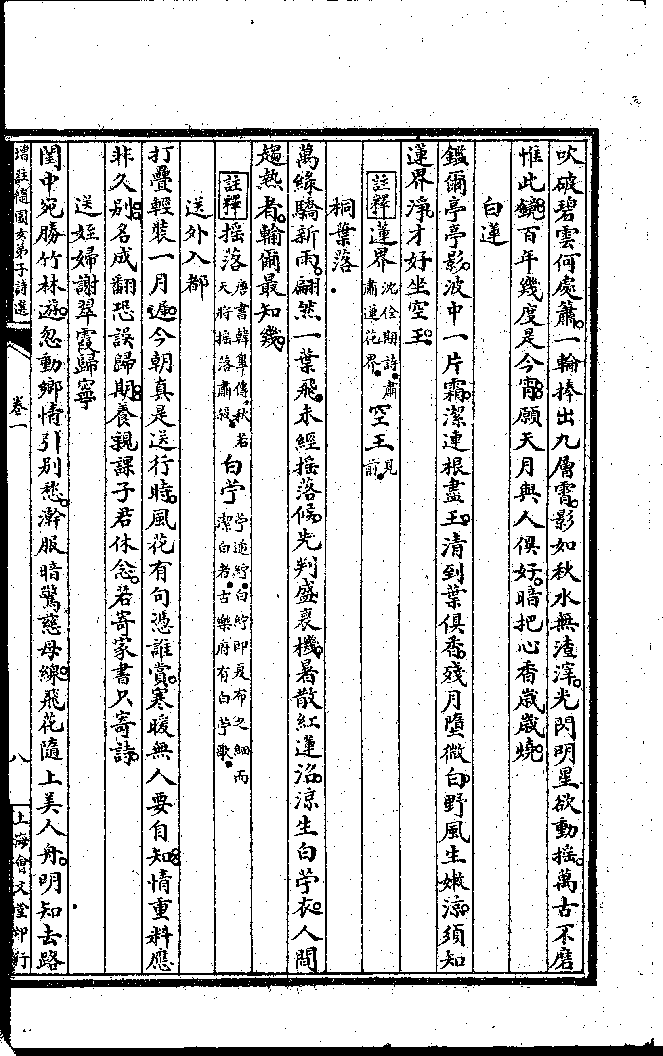 吹破碧雲何處簫一輪捧出九層霄影如秋水無渣滓光閃明星欲動搖萬古不磨
惟此鏡百年幾度是今宵願天月與人俱好暗把心香歲歲燒
白蓮
鑑爾亭亭影波中一片霜潔連根盡玉清到葉俱香殘月墮微白野風生嫩涼須知
蓮界淨才好坐空王
註釋 蓮界 沈佺期詩肅肅蓮花界 空王 見前
桐葉落
萬綠驕新雨翩然一葉飛未經搖落候先判盛衰機暑散紅蓮沼涼生白苧衣人間
趨熱者輸爾最知幾
註釋 搖落 唐書韓臯傳秋若天將搖落肅殺 白苧 苧通紵白紵即夏布之細而潔白者古樂府有白苧歌
送外入都
打疊輕裝一月遲今朝真是送行時風花有句憑誰賞寒暖無人要自知情重料應
非久別名成翻恐誤歸期養親課子君休念若寄家書只寄詩
送姪婦謝翠霞歸寧
閨中宛勝竹林遊忽動鄉情引別愁澣服暗驚慈母線飛花隨上美人舟明知去路
增註隨園女弟子詩選
卷一
八
上海會文堂印行